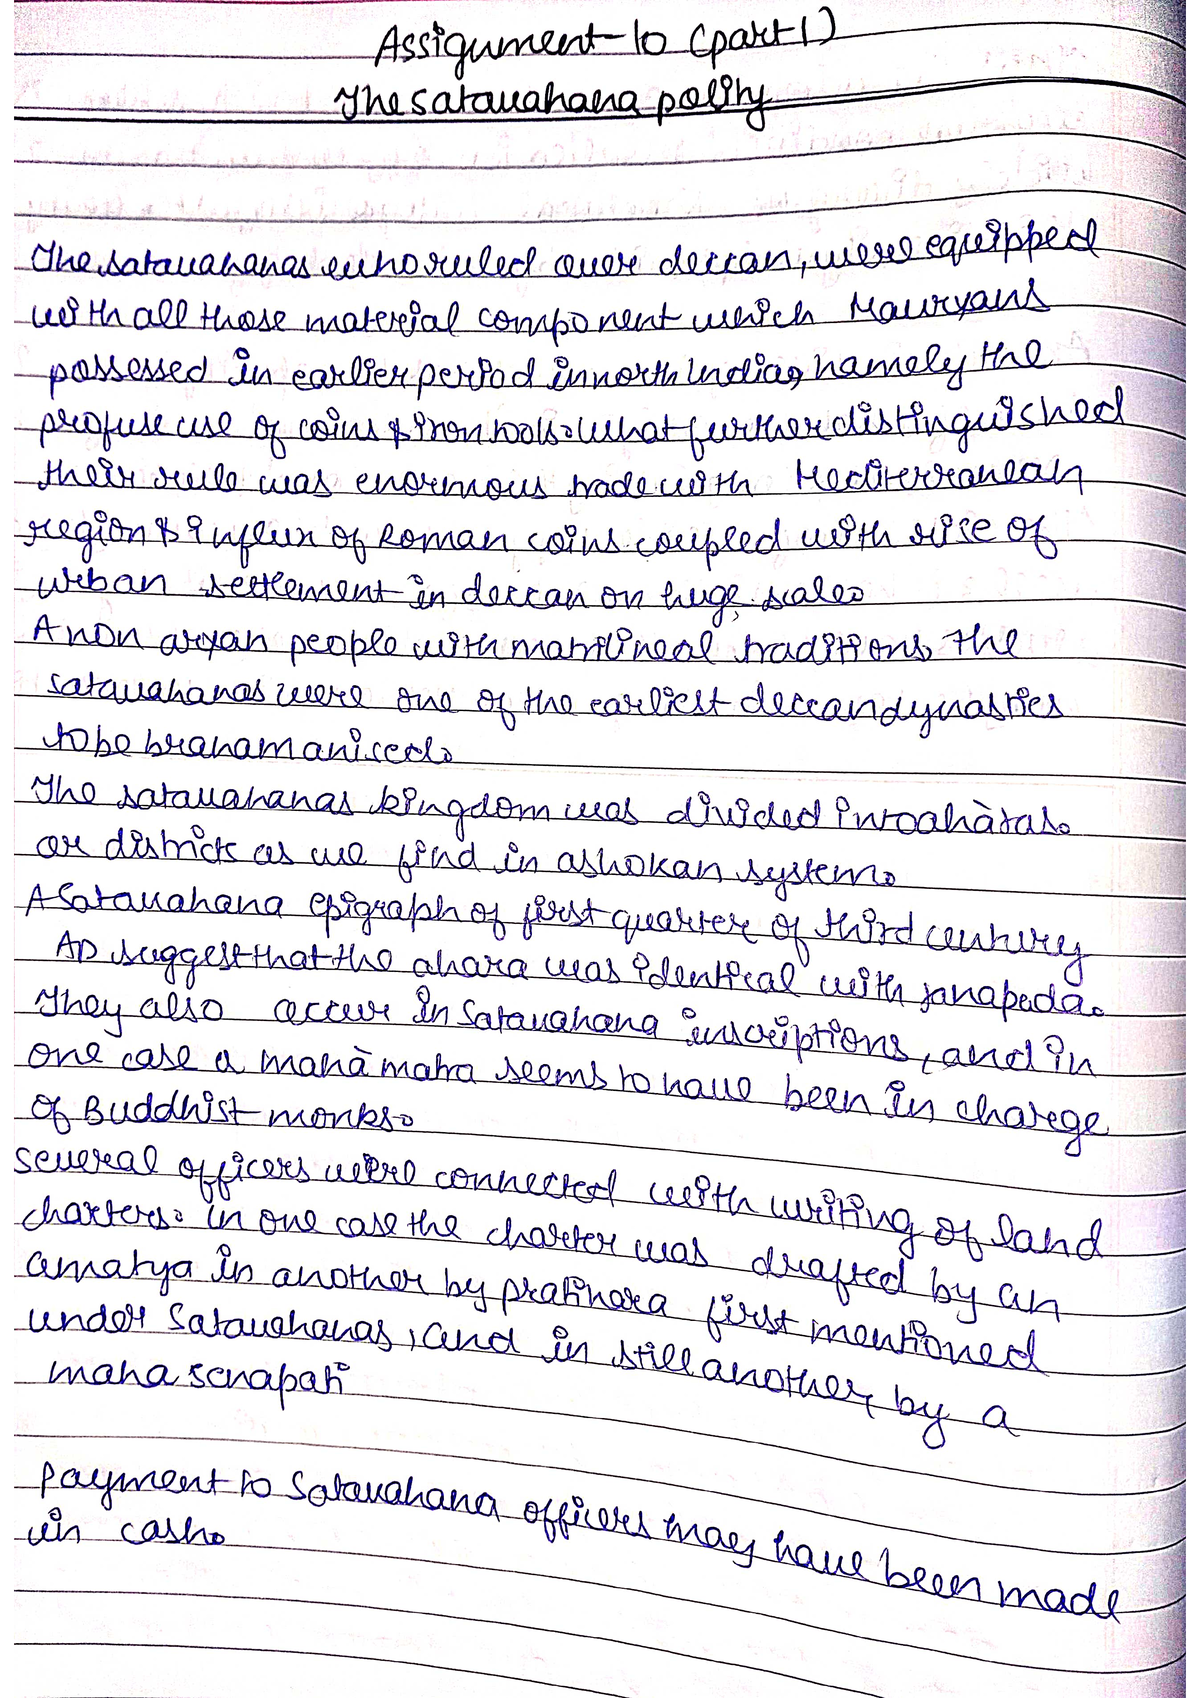 Assignment-10 (part 1)
The satavahana polity
The satavahanas who ruled over deccan, were equipped
with all those material component which Mauryans
possessed in earlier period in north India, namely the
profuse use of coins & iron tools. What further distinguished
their rule was enormous trade with Mediterranean
region & influx of Roman coins coupled with rise of
urban settlement in deccan on huge scale.
A non aryan people with matrilineal traditions, the
satavahanas were one of the earliest deccan dynasties
to be brahamanised.
The satavahanas kingdom was divided into ahàras.
or districts as we find in ashokan system.
A Satavahana epigraph of first quarter of third century
AD suggest that the ahara was identical with janapada.
They also occur in Satavahana inscriptions, and in
one case a mahàmatra seems to have been in charge
of Buddhist monks.
several officers were connected with writing of land
charters. in one case the charter was drafted by an
amatya in another by pratihara first mentioned
under Satavahanas, and in still another, by a
maha senapati
Payment to Satavahana officers may have been made
in cash.